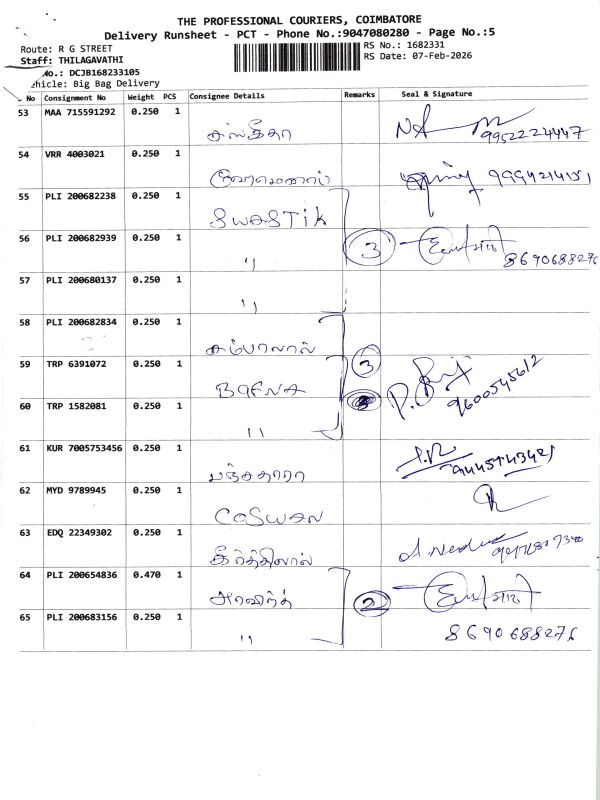 THE PROFESSIONAL COURIERS, COIMBATORE
Delivery Runsheet - PCT - Phone No.:9047080280 - Page No.:5
Route: R G STREET
RS No.: 1682331
Staff: THILAGAVATHI
RS Date: 07-Feb-2026
No.: DCJB168233105
ehicle: Big Bag Delivery
No Consignment No Weight PCS Consignee Details Remarks Seal & Signature
53 MAA 715591292 0.250 1
9952224447
54 VRR 4003021 0.250 1
55 PLI 200682238 0.250 1 SWASTik
56 PLI 200682939 0.250 1 " 3
8690688276
57 PLI 200680137 0.250 1 "
58 PLI 200682834 0.250 1 சம்பாலால்
59 TRP 6391072 0.250 1 BafNA 3
9600545612
60 TRP 1582081 0.250 1 "
61 KUR 7005753456 0.250 1
62 MYD 9789945 0.250 1
63 EDQ 22349302 0.250 1
64 PLI 200654836 0.470 1 அரவிந்த் 2
65 PLI 200683156 0.250 1 " 8690688276